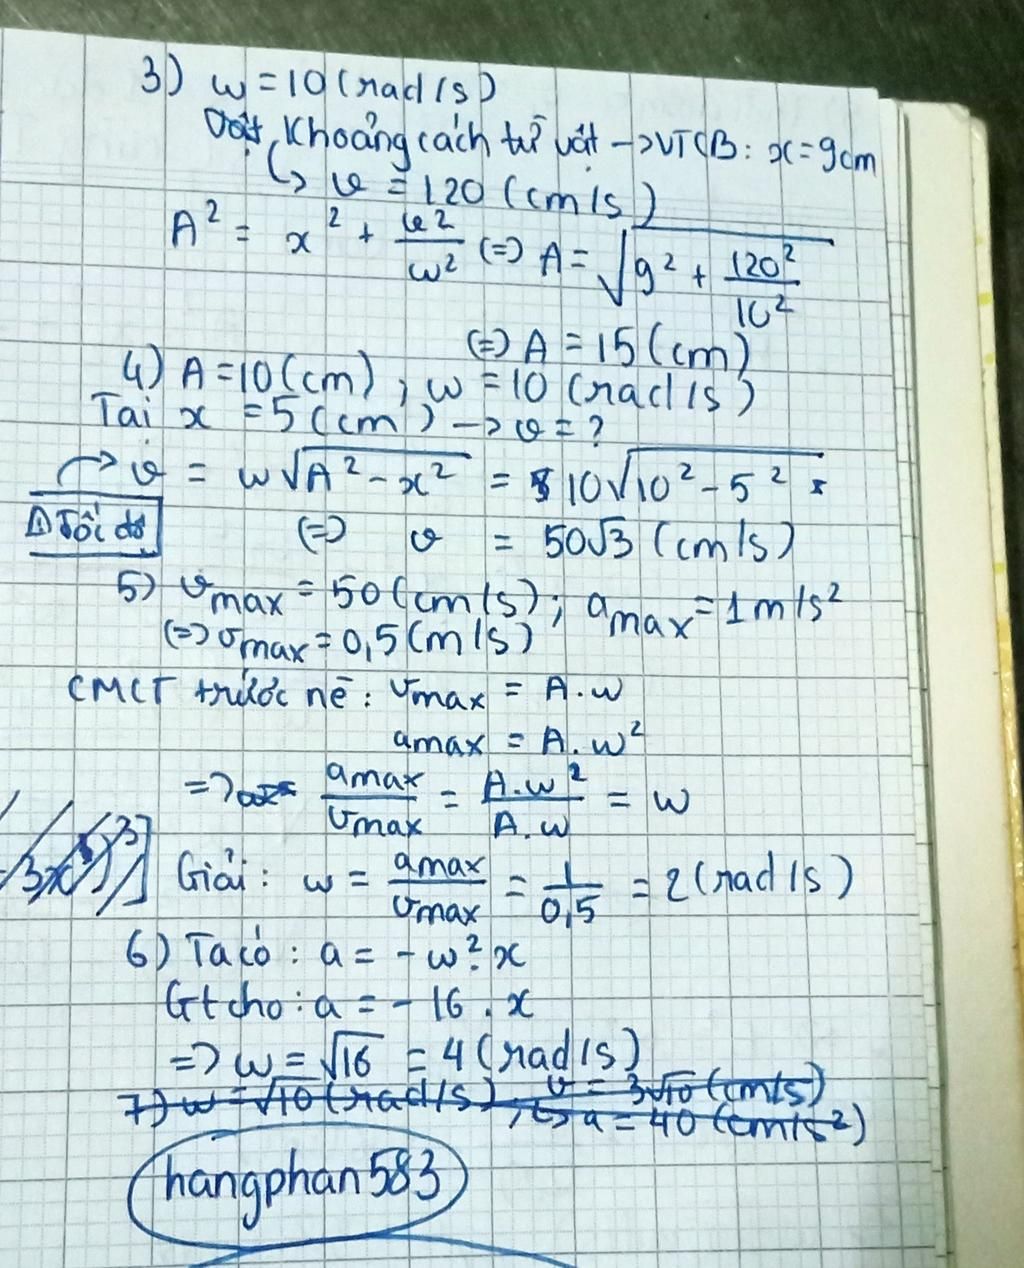 3) ω = 10 (rad/s)
Vật, Khoảng cách từ vật -> VTCB: x = 9cm
↳ v = 120 (cm/s)
A² = x² + v²/ω² (=) A = √(9² + 120²/10²)
(=) A = 15 (cm)
4) A = 10 (cm), ω = 10 (rad/s)
Tại x = 5 (cm) -> v = ?
v = ω√(A² - x²) = 10√(10² - 5²)
Tốc độ (=) v = 50√3 (cm/s)
5) vmax = 50 (cm/s); amax = 1 m/s²
(=) vmax = 0,5 (m/s)
CMCT trước nè: vmax = A.ω
amax = A.ω²
=> amax/vmax = A.ω²/A.ω = ω
Giải: ω = amax/vmax = 1/0,5 = 2 (rad/s)
6) Ta có: a = -ω².x
Gt cho: a = -16.x
=> ω = √16 = 4 (rad/s)
7) ω = √10 (rad/s), v = 3√10 (cm/s)
↳ a = 40 (cm/s²)
hangphan583